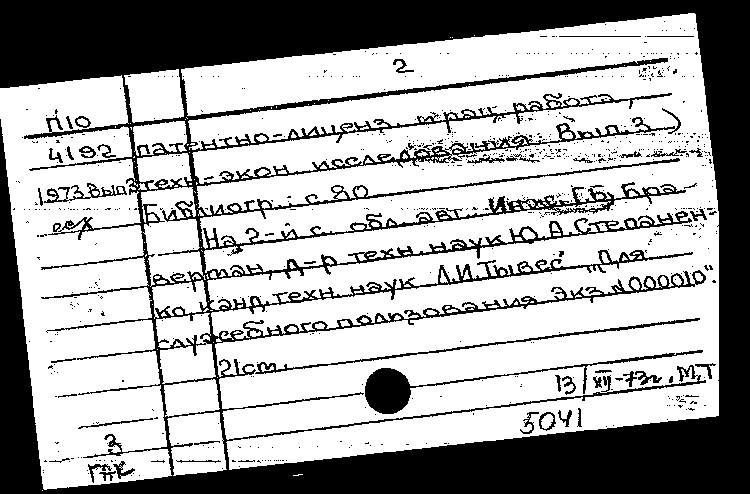 2
П10
4192 патентно-лиценз. и рац. работа,
1973 вып3 техн-экон. исследования. Вып. 3)
Библиогр.: с. 20
На 2-й с. обл. авт.: Инж. Г.Б. Бра-
верман, д-р техн. наук Ю.А. Степанен-
ко, канд. техн. наук Л.И. Тывес. „Для
служебного пользования Экз. N000010".
21cm.
13/XII-73г. М.Т
5041
3
ГАК